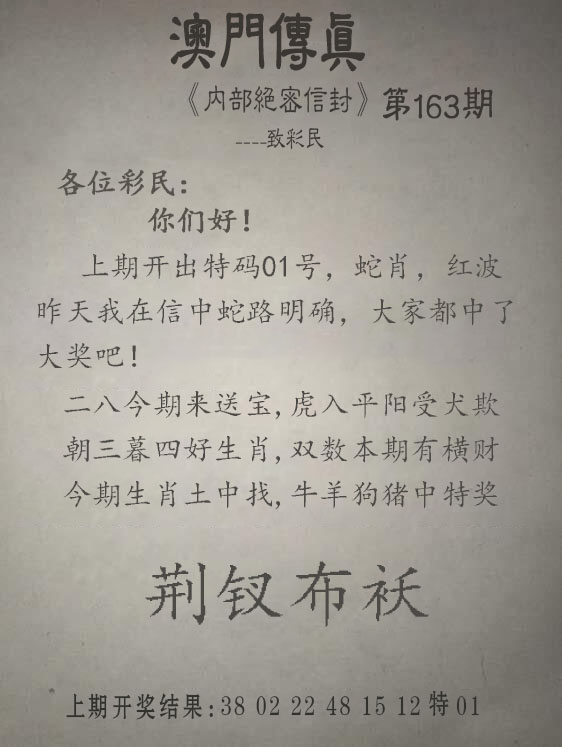 澳門傳真
《内部絕密信封》第163期
----致彩民
各位彩民：
你们好！
上期开出特码01号，蛇肖，红波
昨天我在信中蛇路明确，大家都中了
大奖吧！
二八今期来送宝,虎入平阳受犬欺
朝三暮四好生肖,双数本期有横财
今期生肖土中找,牛羊狗猪中特奖
荆钗布袄
上期开奖结果:38 02 22 48 15 12 特 01